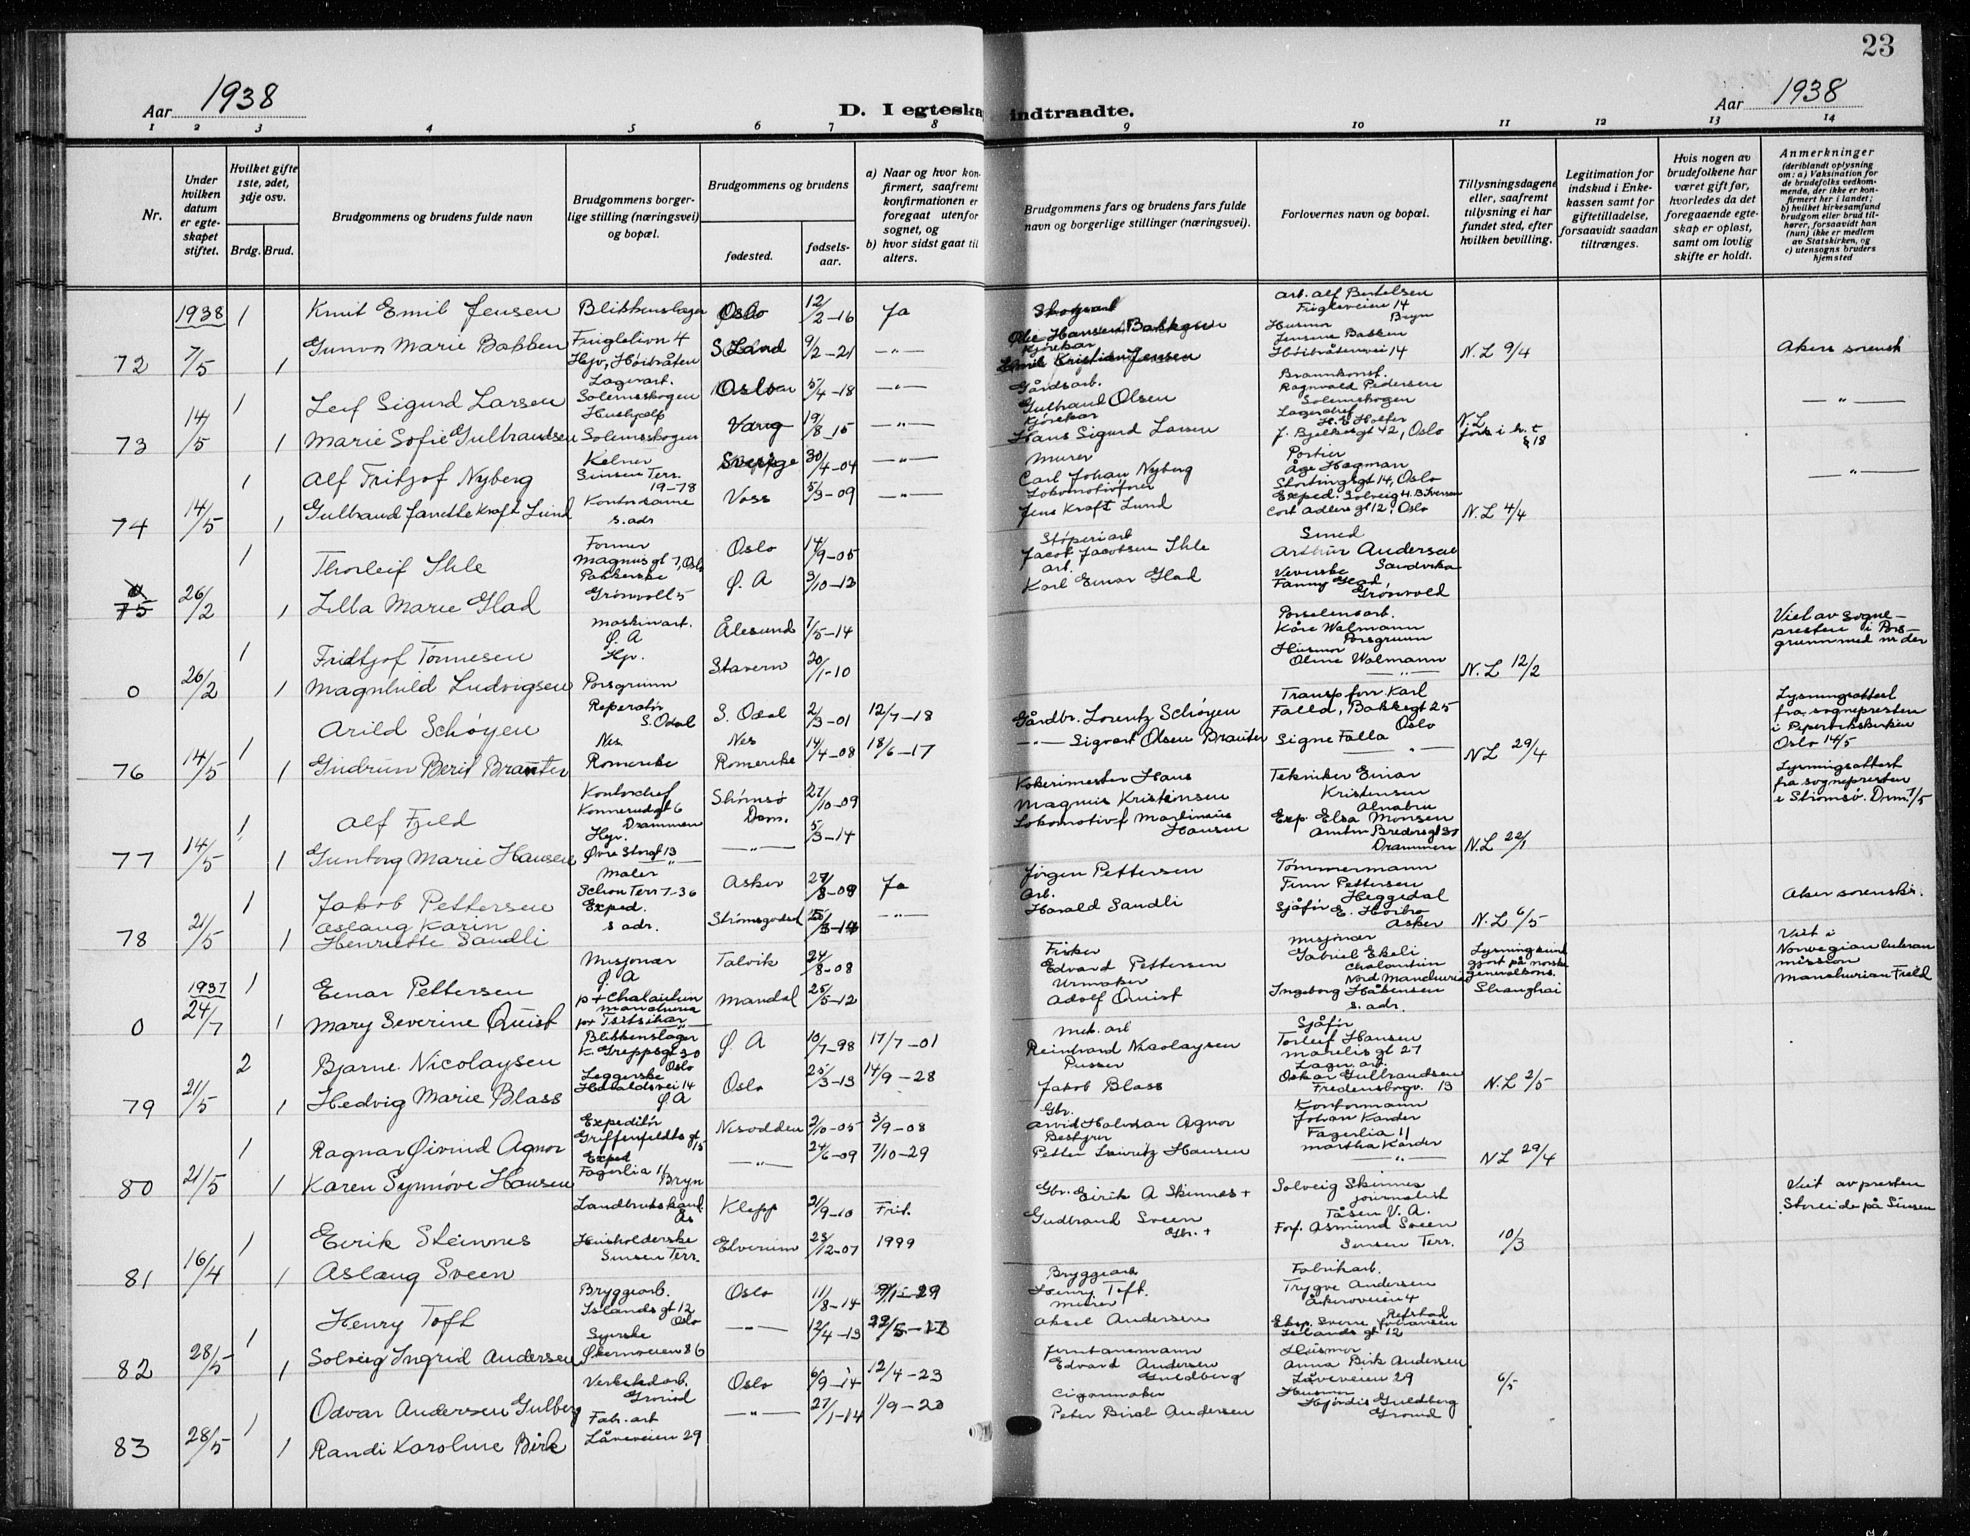 23
Aar 1938
D. I egteska indtraadte.
Aar 1938
1 2 3 4 5 6 7 8 9 10 11 12 13 14
Nr.
Under hvilken datum er egteskapet stiftet.
Hvilket gifte 1ste, 2det, 3dje osv.
Brdg. Brud.
Brudgommens og brudens fulde navn
Brudgommens borgerlige stilling (næringsvei) og bopæl.
Brudgommens og brudens
fødested.
fødselsaar.
a) Naar og hvor konfirmert, saafremt konfirmationen er foregaat utenfor sognet, og
b) hvor sidst gaat til alters.
Brudgommens fars og brudens fars fulde navn og borgerlige stillinger (næringsvei).
Forlovernes navn og bopæl.
Tillysningsdagene eller, saafremt tillysning ei har fundet sted, efter hvilken bevilling.
Legitimation for indskud i Enkekassen samt for giftetilladelse, forsaavidt saadan tiltrænges.
Hvis nogen av brudefolkene har været gift før, hvorledes da det foregaaende egteskap er opløst, samt om lovlig skifte er holdt.
Anmerkninger
(deriblandt oplysning om: a) Vaksination for de brudefolks vedkommende, der ikke er konfirmert her i landet; b) hvilket kirkesamfund brudgom eller brud tilhører, forsaavidt han (hun) ikke er medlem av Statskirken, og c) utensogns bruders hjemsted
1938
72 7/5 1 Knut Emil Jensen Blikkenslager Oslo 12/2-16 Ja
1 Gunvor Marie Bakken S. Land 9/2-21 —"—
Ole Hansen Bakken
Kjørekar
Emil Kristian Jensen
arb. Alf Bertelsen
Bryn
Husmor
Jensine Bakken
Høibråtenvei 14
N.L 9/4
Aker sorensk
73 14/5 1 Leif Sigurd Larsen
Lagerarb.
Solemskogen
Oslo 5/4-18 —"—
1 Marie Sofie Gulbrandsen
Hushjelp
Solemskogen
Vang 19/8-15 —"—
Gårdsarb.
Gulbrand Olsen
Kjørekar
Hans Sigurd Larsen
Ragnvald Pedersen
Solemskogen
J. Bjelkesgt 42, Oslo
N.L
§ 18
—"—
74 14/5 1 Alf Fritjof Nyberg
Kelner
Sinsen Terr.
19-78
Sverige 30/4-04 —"—
1 Gulbrand Janette Kraft Lund
Kontordame
s. adr
Voss 5/3-09 —"—
Murer
Carl Johan Nyberg
Lokomotivfører
Jens Kraft Lund
Portier
Åge Hagman
Stortingsgt 14, Oslo
Exped. Solveig H. B. Iversen
Cort Adlers gt 12, Oslo
N.L 4/4
—"—
0
75 26/2 1 Thorleif Ihle
Former
Magnusgt 7, Oslo
Oslo 14/9-05
1 Lilla Marie Glad
Pakkerske
Grønvoll 5
Ø. A 3/10-12
Støperiarb
Jacob Jacobsen Ihle
arb.
Karl Einar Glad
Smed
Arthur Andersen
Sandvika
Veverske
Fanny Glad,
Grønvold
0 26/2 1 Fridtjof Tønnesen
Maskinarb.
Ø. A
Ålesund 7/5-14
1 Magnhild Ludvigsen
Hjv.
Porsgrunn
Stavern 20/1-10
Porselensarb.
Kåre Walmann
Porsgrunn
Husmor
Oline Walmann
—"—
N.L 12/2
Viet av sogne-
presten i Pors-
grunn med nr der
76 14/5 1 Arild Schøyen
Reperatør
S. Odal
S. Odal 2/3-01 12/7-18
1 Gudrun Berit Brauter
Nes
Romerike
Nes
Romerike
14/4-08 18/6-17
Gårdbr. Lorentz Schøyen
—"— Sigvart Olsen Brauter
Transp.forr Karl
Falla, Bakkegt 25
Oslo
Signe Falla
—"—
N L 29/4
Lysningsattest
fra sognepresten
i Pipervikskirken
Oslo 14/5
77 14/5 1 Alf Fjeld
Kontorchef
Konnerudgt 6
Drammen
Strømsø
Drm.
27/10-09
1 Gunborg Marie Hansen
Hjv.
Øvre Storgt 13
—"—
—"— 5/3-14
Kokerimester Hans
Magnus Kristensen
Lokomotivf Martinius
Hansen
Tekniker Einar
Kristensen
Alnabru
Exp Elsa Monsen
Amtm Bredersgt 30
Drammen
N.L 22/1
Lysningsattest
fra sognepresten
i Strømsø. Drm. 7/5
78 21/5 1 Jakob Pettersen
Maler
Schou Terr 7-36
Asker 27/8-09 Ja
1 Aslaug Karin
Henriette Sandli
Exped.
s adr.
Strømsgodset 25/3-14 —"—
Jørgen Pettersen
Arb.
Harald Sandli
Tømmermann
Finn Pettersen
Heggedal
Sjåfør E. Høibro
Asker
N.L 6/5
Aker sorenskr.
1937
0 24/7 1 Einar Pettersen
Misjonær
Ø. A
Talvik 24/8-08
1 Mary Severine Quist
pt Chalantun
Manchuria
pt Tsitsihar
Mandal 25/5-12
Fisker
Edvard Pettersen
Urmaker
Adolf Quist
Misjonær
Gabriel Ekeli
Chalantun
Nord Manchuria
Ingeborg Håkensen
s. adr.
gjort på norske
generalkons.
Shanghai
Viet i
Norwegian luteran
mission
Manchurian Field
79 21/5 2 Bjarne Nicolaysen
Blikkenslager
K. Greppsgt 30
Oslo
Ø. A 10/7-98 17/7-01
1 Hedvig Marie Blass
Leggerske
Haraldsvei 14
Ø A
Oslo 25/3-13 14/9-28
Mek. arb
Reinhard Nicolaysen
Pusser
Jakob Blass
Sjåfør
Torleif Hansen
Marelis gt 27
Lager arb.
Oskar Gulbrandsen
Fredensborgv. 13
N.L 2/5
80 21/5 1 Ragnar Øivind Agnor
Expeditør
Griffenfeldts gt
15
Nesodden 2/10-05 3/9-08
1 Karen Synnøve Hansen
Exped
Fagerlia 11
Bryn
—"— 24/6-09 7/10-29
Gbr.
Arvid Halvdan Agnor
Bestyrer
Petter Lauritz Hansen
Kontormann
Johan Kander
Fagerlia 11
Martha Kander
—"—
N L 29/4
81 16/4 1 Eirik Steinnes
Landbrukskand.
Ås
Klepp 21/9-10 Frit.
1 Aslaug Sveen
Husholderske
Sinsen Terr.
Elverum 23/12-07 1999
Gbr. Eirik A Skinnes +
Gudbrand Sveen
Gbr. +
Solveig Skinnes
journalist
Tåsen V. A.
Forf. Asmund Sveen
Sinsen Terr.
10/3
Viet av presten
Storeide på Sinsen
82 28/5 1 Henry Toft
Bryggearb.
Islands gt 12
Oslo
Oslo 11/8-14
1 Solveig Ingrid Andersen
Syerske
Økernveien 86
—"— 12/4-13
Bryggearb
Henry Toft.
Murer
Aksel Andersen
Fabrikarb.
Trygve Andersen
Åkeroveien 4
Refstad
Eksp. Sverre Johansen
Islands gt 12
83 28/5 1 Odvar Andersen Gulberg
Verkstedarb.
Grorud
Oslo 6/9-14 12/4-23
1 Randi Karoline Birk
Fab. arb
Låveveien 29
—"— 27/1-14 1/9-20
Jernbanemann
Edvard Andersen
Guldberg
Cigarmaker
Peter Birk Andersen
Husmor
Anna Birk Andersen
Låveveien 29
Husmor
Hjørdis Guldberg
Grorud
6/5